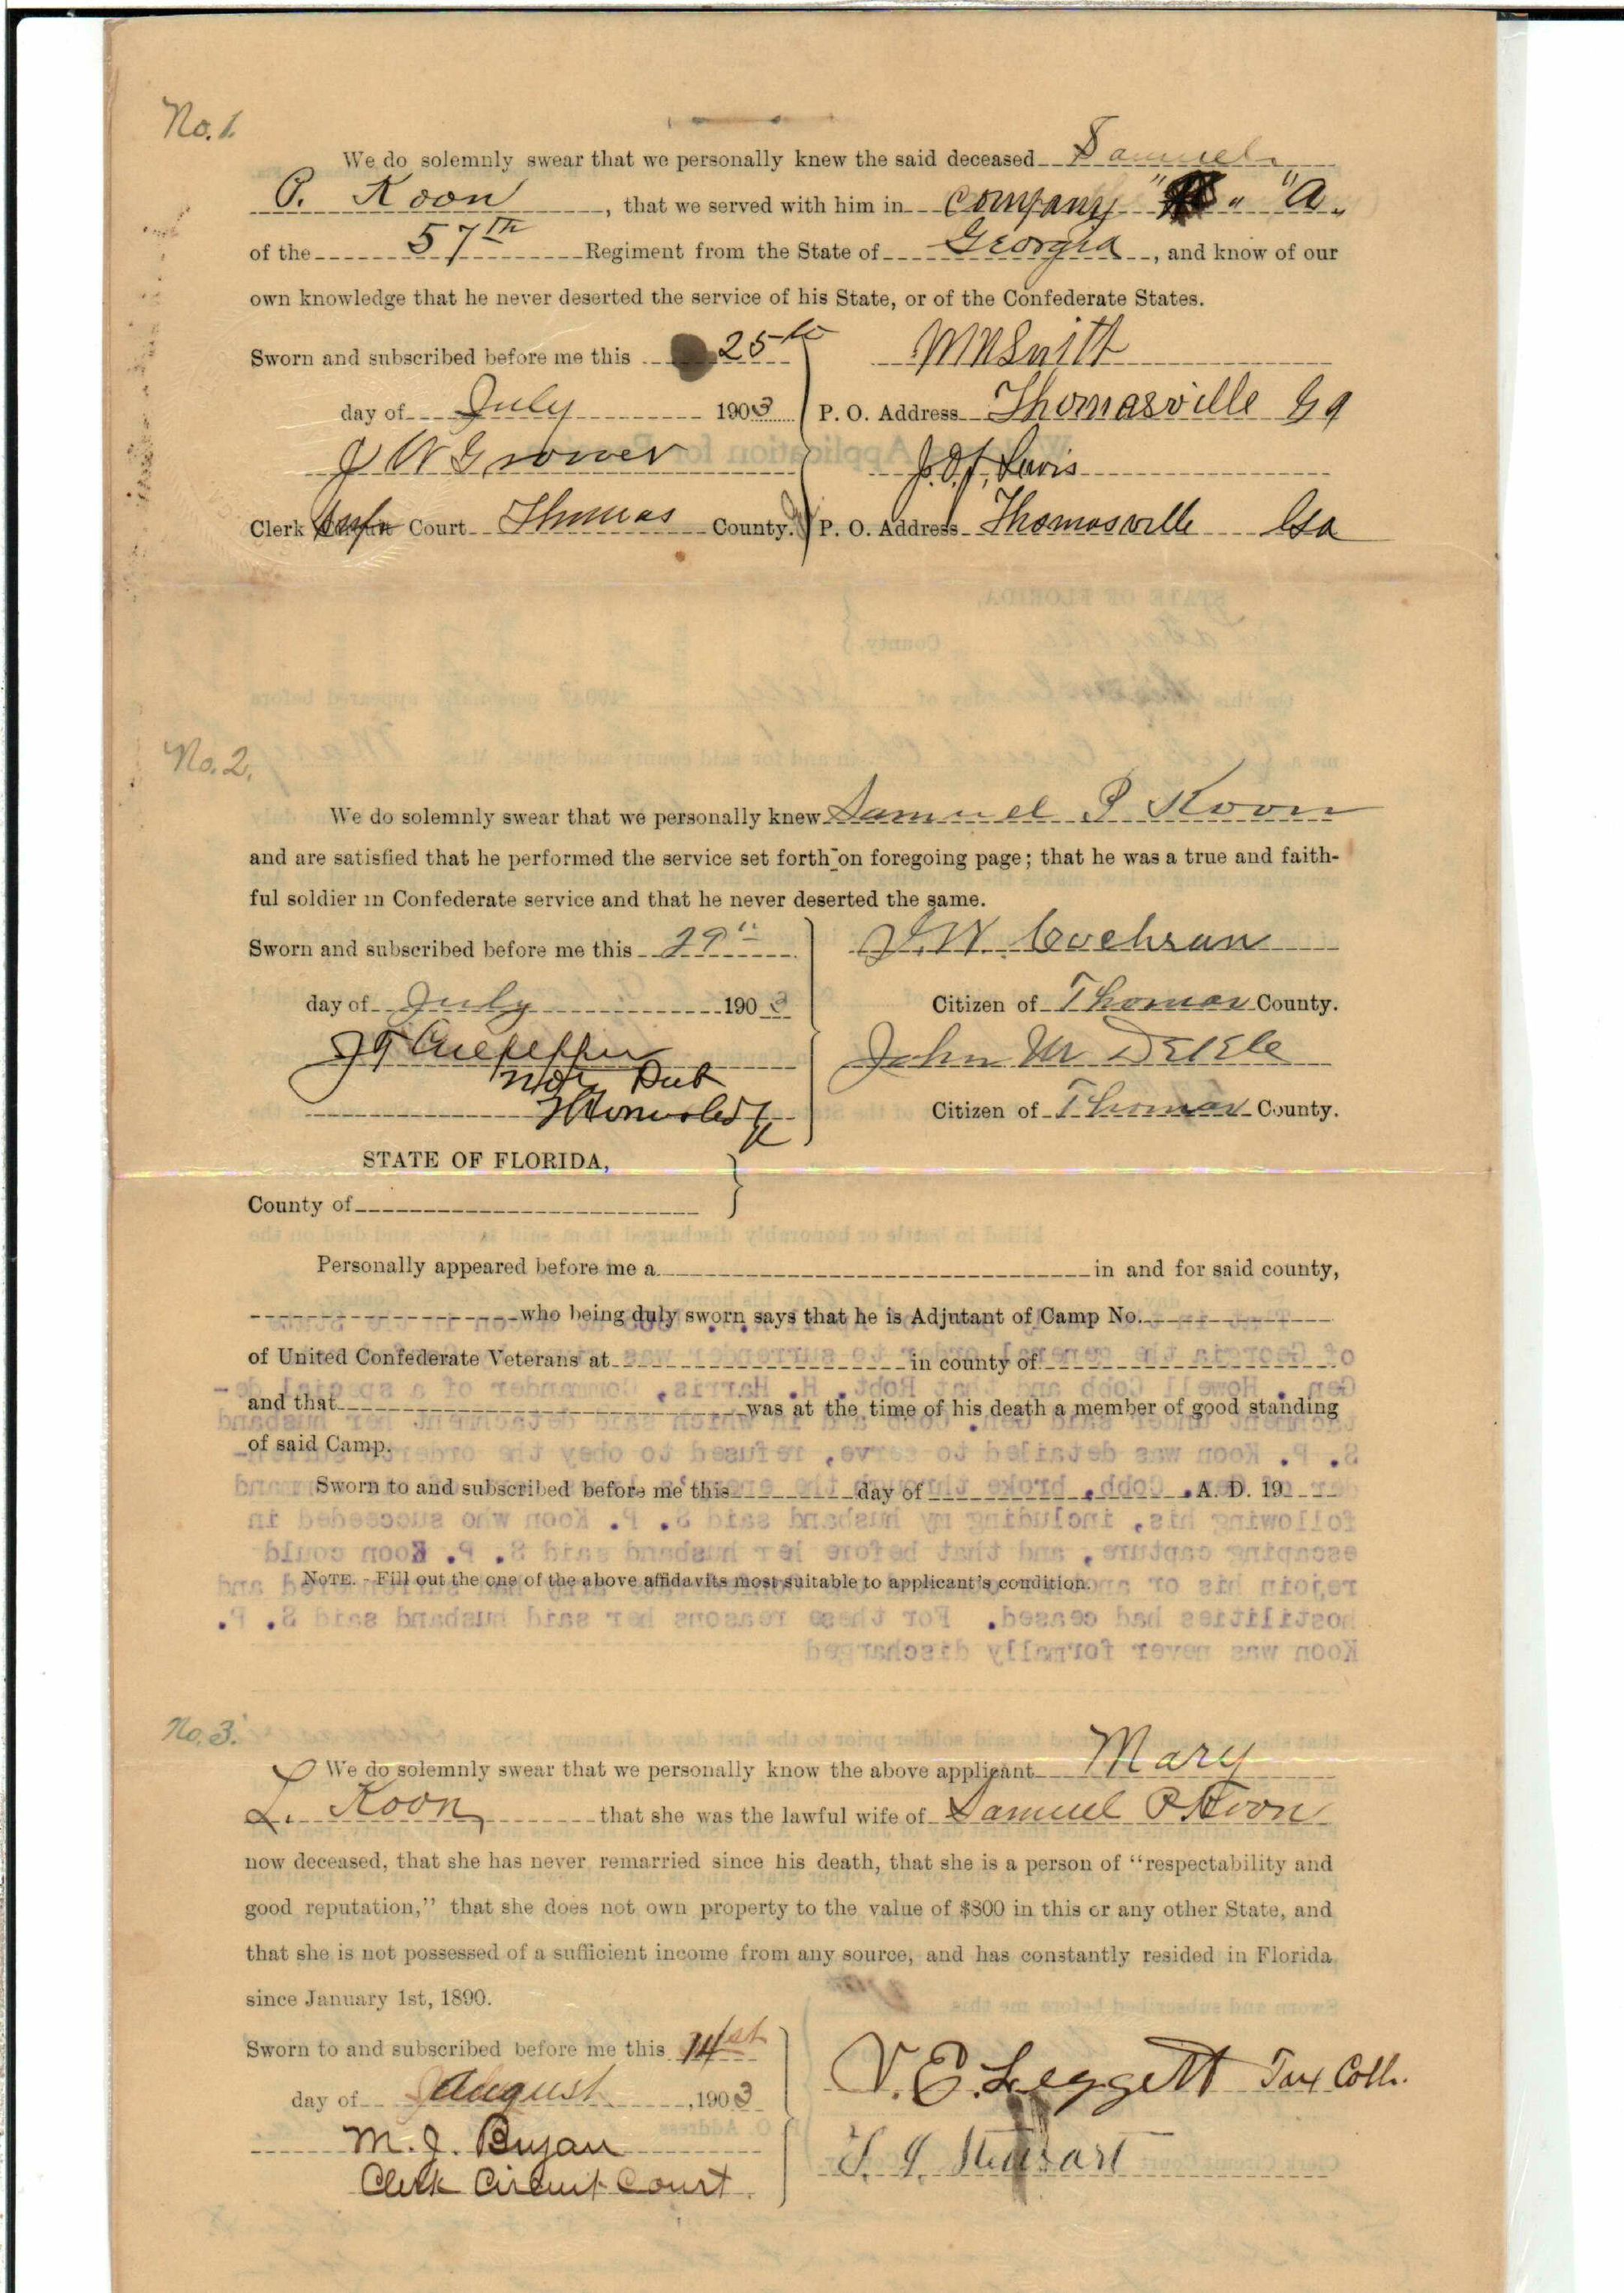 No. 1.
We do solemnly swear that we personally knew the said deceased Samuel
P. Koon, that we served with him in Company " " "A"
of the 57th Regiment from the State of Georgia, and know of our
own knowledge that he never deserted the service of his State, or of the Confederate States.
Sworn and subscribed before me this 25th
day of July 1903
J W Grower
Clerk Supr Court Thomas County.
M N Smith
P. O. Address Thomasville Ga
J. O. J. Lewis
P. O. Address Thomasville Ga
No. 2.
We do solemnly swear that we personally knew Samuel P Koon
and are satisfied that he performed the service set forth on foregoing page; that he was a true and faith-
ful soldier in Confederate service and that he never deserted the same.
Sworn and subscribed before me this 29"
day of July 1903
J T Culpepper
Not Pub
J. W. Cochran
Citizen of Thomas County.
John M Dekle
Citizen of Thomas County.
STATE OF FLORIDA,
County of
Personally appeared before me a in and for said county,
who being duly sworn says that he is Adjutant of Camp No.
of United Confederate Veterans at in county of
and that was at the time of his death a member of good standing
of said Camp.
Sworn to and subscribed before me this day of A. D. 19
NOTE. - Fill out the one of the above affidavits most suitable to applicant's condition.
No. 3.
We do solemnly swear that we personally know the above applicant Mary
L. Koon that she was the lawful wife of Samuel P Koon
now deceased, that she has never remarried since his death, that she is a person of "respectability and
good reputation," that she does not own property to the value of $800 in this or any other State, and
that she is not possessed of a sufficient income from any source, and has constantly resided in Florida
since January 1st, 1890.
Sworn to and subscribed before me this 14st
day of August, 1903
M. J. Bryan
Clerk Circuit Court.
V. E. Leggett Tax Coll.
T. J. Stewart